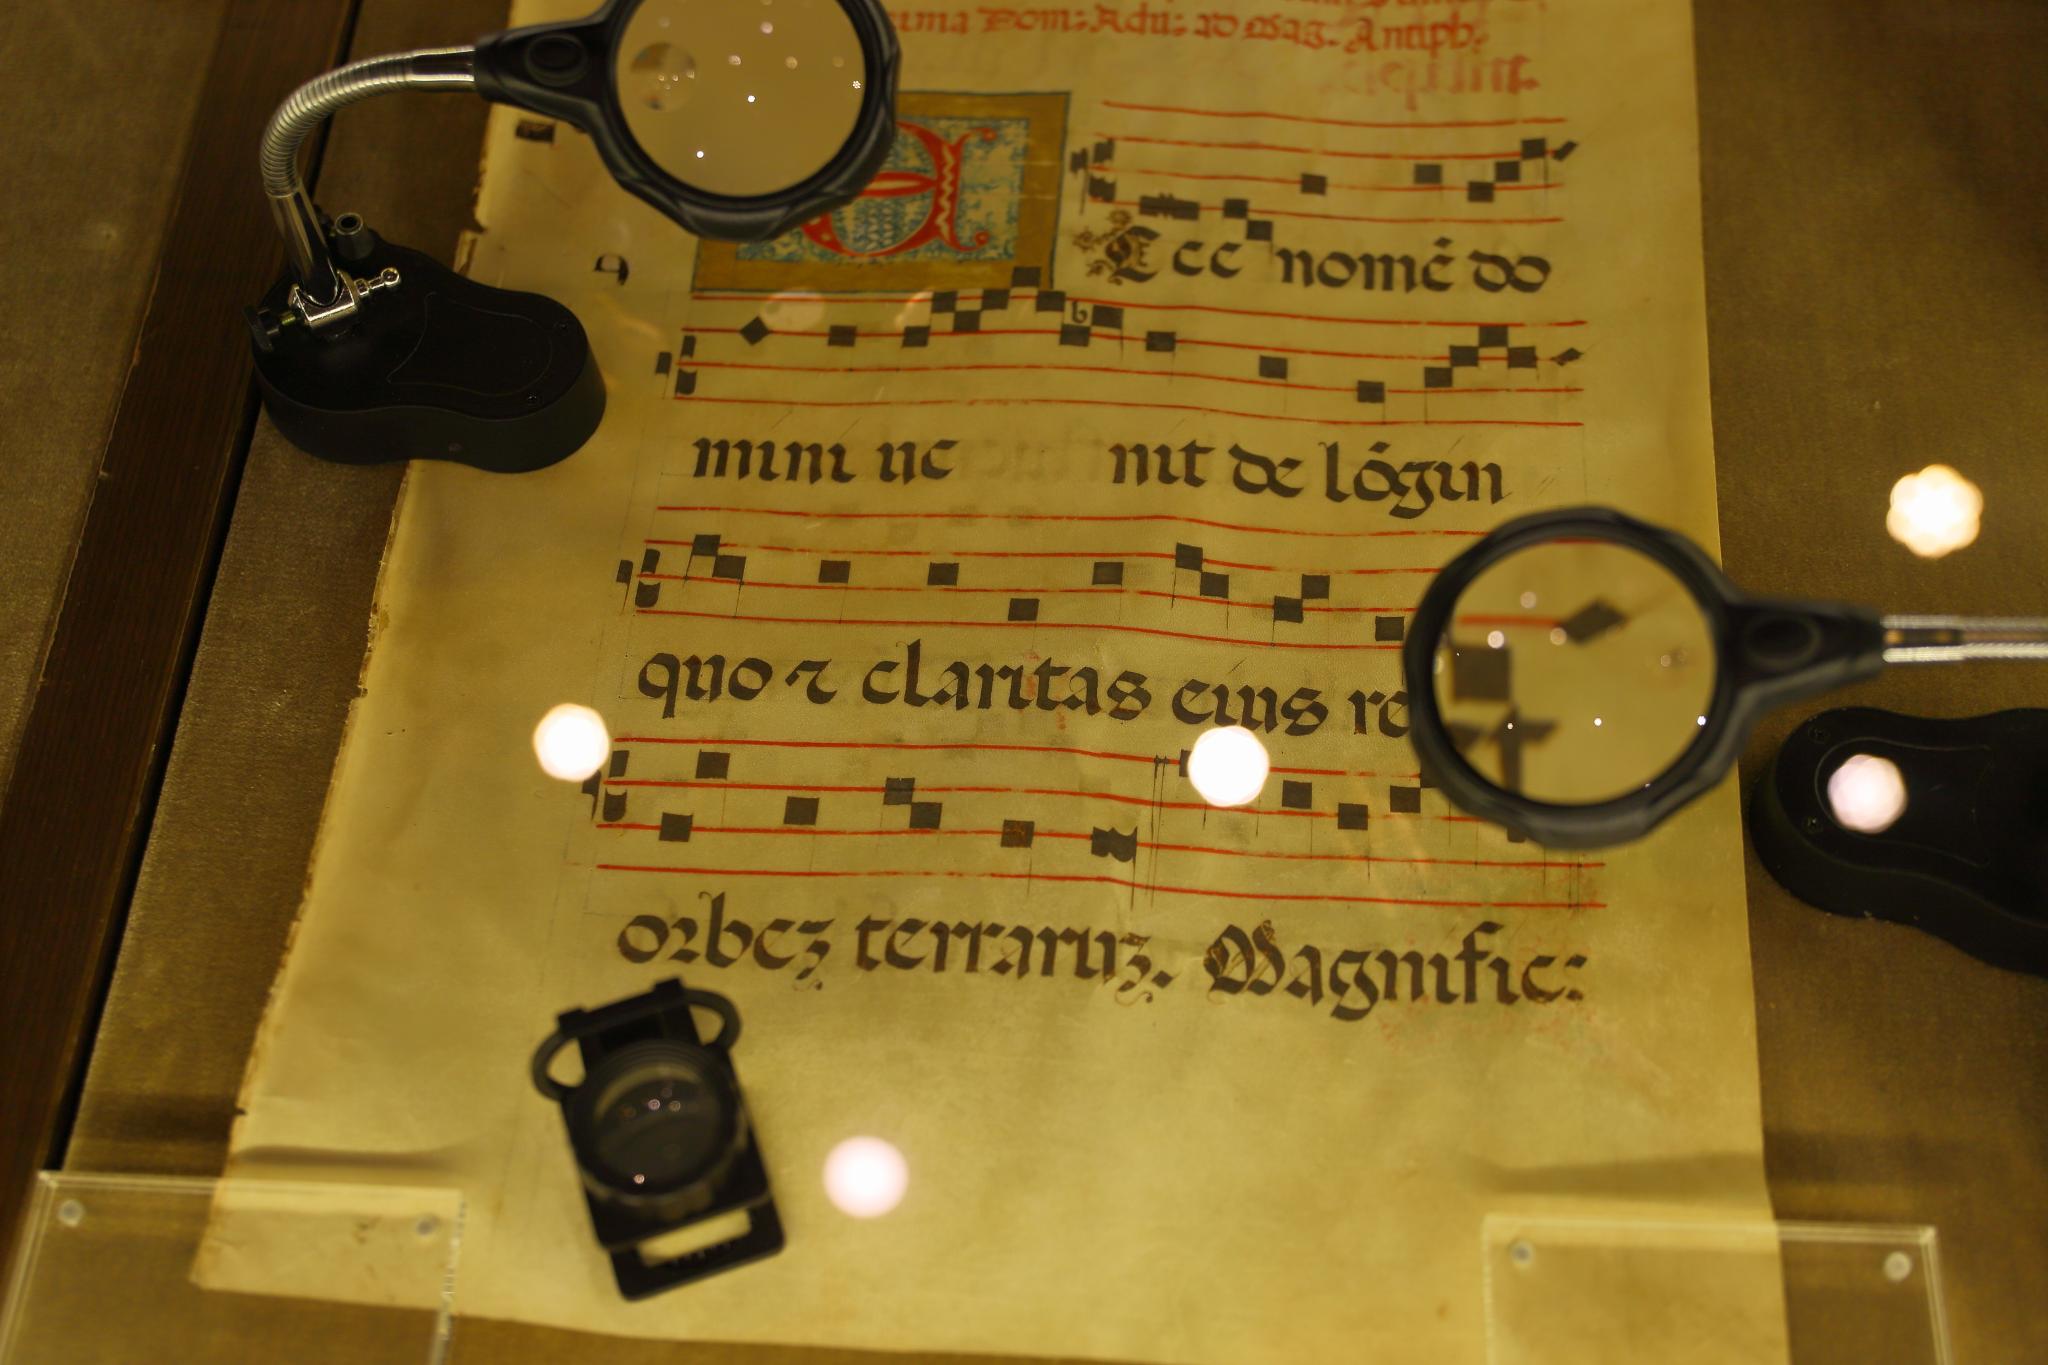 ima Dom: Adu: ad Mag. Antiph:
Ecce nomē do
mini ue nit de lōgin
quo ⁊ claritas eius re
orbez terraruz. Magnific: